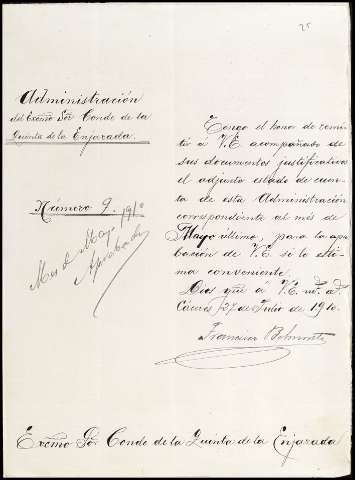 25
Administración
del Excmo Sor Conde de la
Quinta de la Enjarada.
Número 9.
Mes de Mayo 1910
Aprobada
Tengo el honor de remi-
tir á V.E. acompañado de
sus documentos justificativos
el adjunto estado de cuen-
ta de esta Administración
correspondiente al mes de
Mayo último, para la apro-
bacion de V.E. si lo esti-
ma conveniente.
Dios gue á V.E. ms. as.
Cáceres 27 de Julio de 1910.
Francisco Belmonte
Excmo Sor Conde de la Quinta de la Enjarada